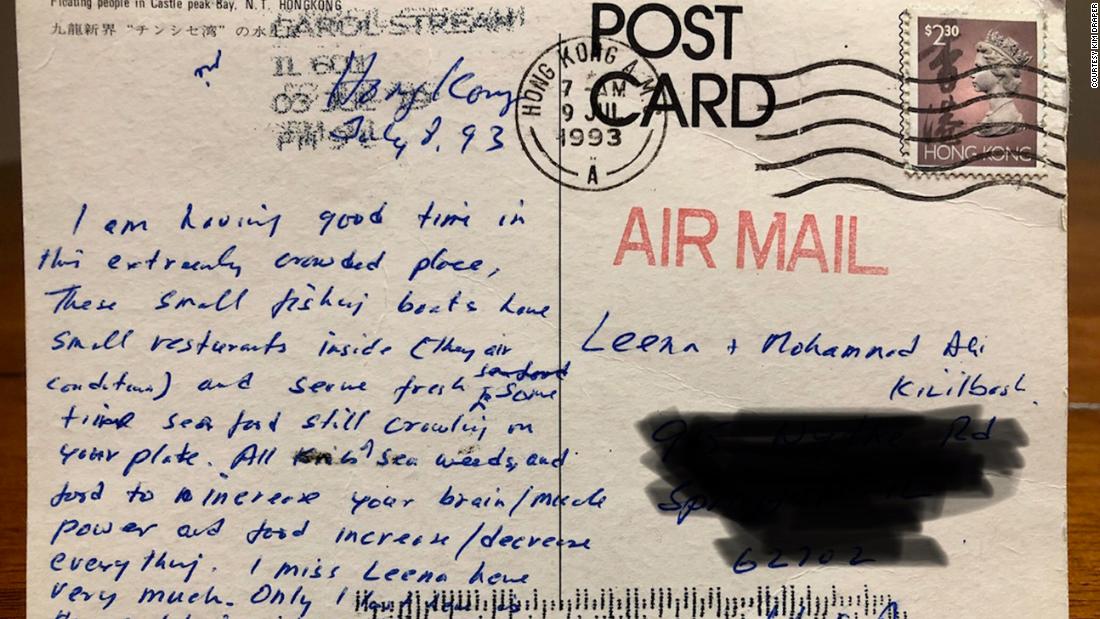 Floating people in Castle peak Bay, N. T. HONGKONG
九龍新界 "チンシセ湾" の水
CAROL STREAM
IL 601
03 JUL
PM
Hong Kong
July 8, 93
POST
CARD
HONG KONG
7 AM
9 JUL
1993
A
$2.30
香港
HONG KONG
AIR MAIL
I am having good time in
this extremely crowded place,
These small fishing boats have
small resturants inside (they air
condition) and serve fresh seafood
some
time sea food still crawling on
your plate. All sea weeds, and
food to increase your brain/muscle
power and food increase/decrease
everything. I miss Leena here
very much. Only I
Leena + Mohammed Ali
Kizilbash.
Rd
Sp
62702
COURTESY KIM DRAPER